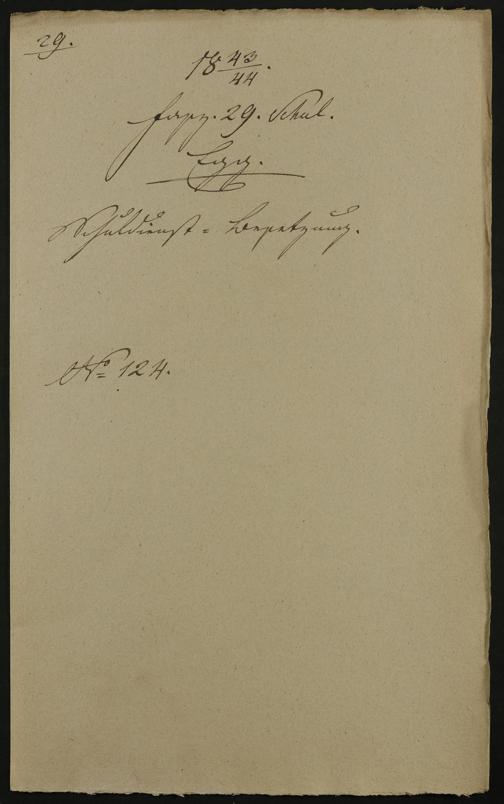 29.
18 43/44.
Fasz. 29. Schul.
Egg.
Schuldienst = Besetzung.
No 124.